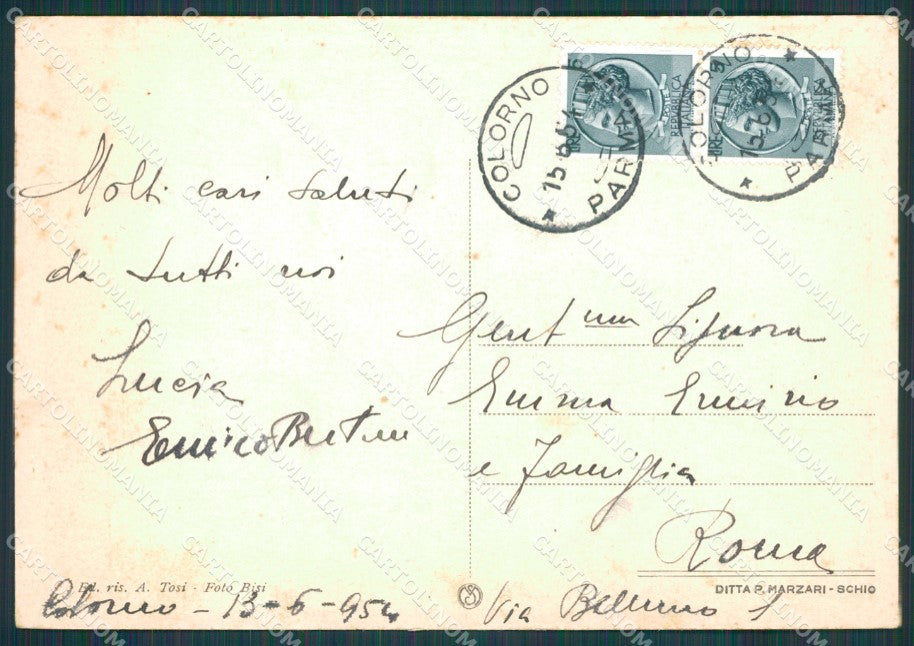 COLORNO
15.6.54
PARMA
COLORNO
15.6.
PARMA
LIRE
REPUBBLICA
ITALIANA
Molti cari saluti
da tutti noi
Lucia
Enrico
Gent.ma Signora
Emma
e Famiglia
Roma
Via Belluno 1
Ed. ris. A. Tosi - Foto Bisi
DITTA P. MARZARI - SCHIO
Colorno - 13-6-954
CARTOLINOMANIA